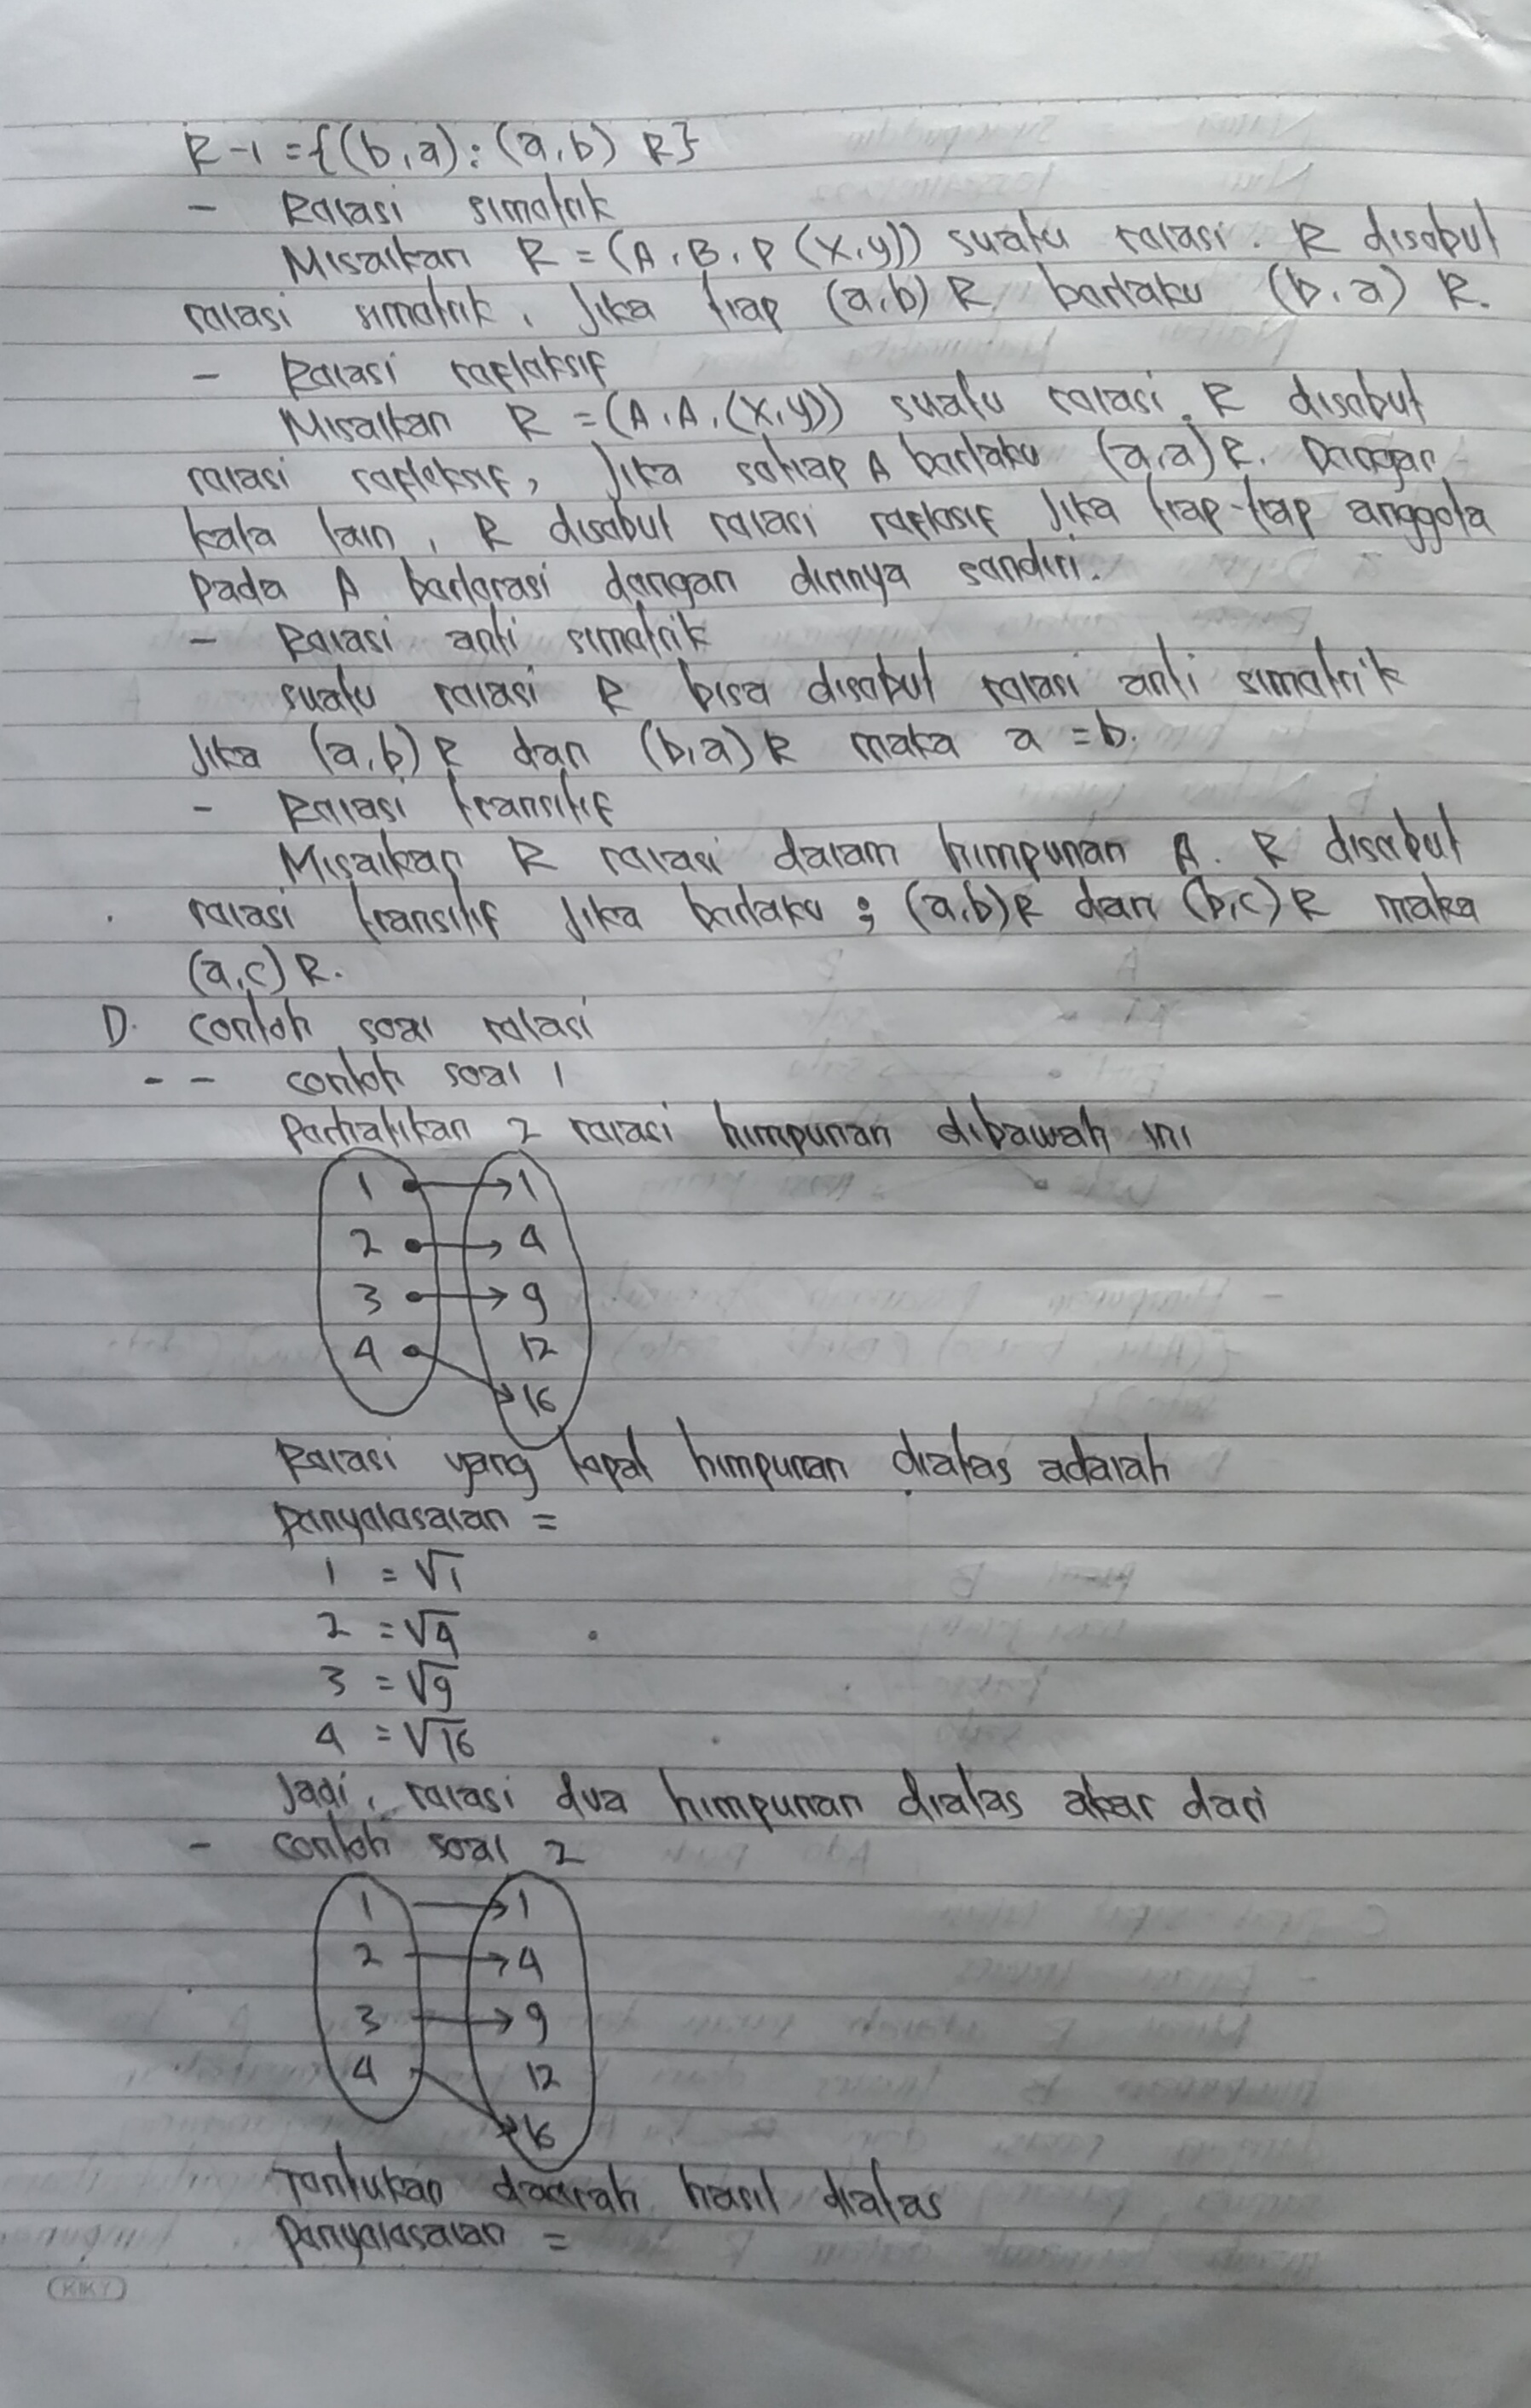 R-1 = {(b,a) : (a,b) R}
- Relasi simetrik
Misalkan R = (A, B, P (x,y)) suatu relasi. R disebut
relasi simetrik, Jika tiap (a,b) R berlaku (b,a) R.
- Relasi refleksif
Misalkan R = (A, A, (x,y)) suatu relasi. R disebut
relasi refleksif, Jika setiap A berlaku (a,a) R. Dengan
kata lain, R disebut relasi reflesif Jika tiap-tiap anggota
pada A berlerasi dengan dirinya sendiri.
- Relasi anti simetrik
suatu relasi R bisa disebut relasi anti simetrik
Jika (a,b) R dan (b,a) R maka a = b.
- Relasi transitif
Misalkan R relasi dalam himpunan A. R disebut
relasi transitif Jika berlaku ; (a,b) R dan (b,c) R maka
(a,c) R.
D. Contoh soal relasi
- - contoh soal 1
Perhatikan 2 relasi himpunan dibawah ini
1 1
2 4
3 9
4 12
16
Relasi yang tepat himpunan diatas adalah
Penyelesaian =
1 = √1
2 = √4
3 = √9
4 = √16
Jadi, relasi dua himpunan diatas akar dari
- Contoh soal 2
1 1
2 4
3 9
4 12
16
Tentukan daerah hasil diatas
Penyelesaian =
KIKY